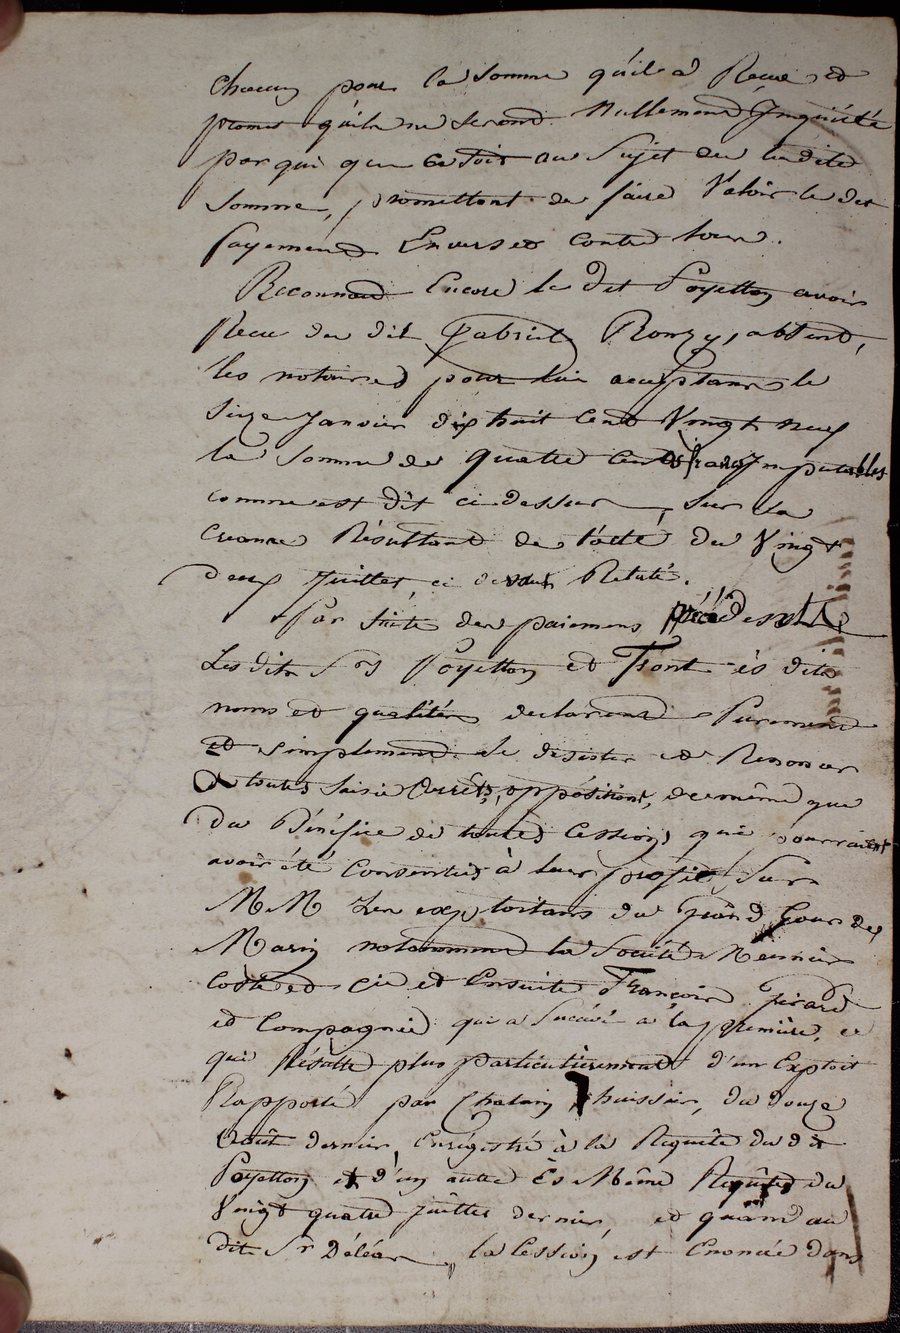 chacun pour la somme qu'il a Recue et
promet qu'ils ne seront Nullement Inquiété
par qui que ce soit au Sujet de la dite
somme, promettant de faire Valoir le dit
payement Envers et contre tous.
Reconnait Encore le dit Poyetton avoir
Recu du dit Gabriel Ronzy, absent,
les notaires pour lui acceptans le
Seize Janvier dix huit Cent Vingt neuf
la Somme de quatre Cents francs Imputables
comme est dit ci dessus, sur la
Creance Résultant de l'acte du Vingt
deux Juillet ci dessus Relaté.
Par suite des paiemens précédents
Les dits Srs Poyetton et Front ès dits
noms et qualités declarent Purement
et simplement Se desister et Renoncer
a toutes Saisie arrêts, oppositions, de même que
du Bénéfice de toutes Cessions qui pourraient
avoir été Consenties à leur profit, Sur
MM Les exploitans du Grand Cour des
Marin notamment la Société Meunier
Coste et Cie et Ensuite François Girard
et Compagnie qui a Succédé a la première, ce
qui Résulte plus particulièrement d'un Exploit
Rapporté par Chatain, huissier, du douze
Août dernier Enrégistré à la Requête du dit
Poyetton et d'un autre Ès Même Requête du
Vingt quatre Juillet dernier, et quant au
dit Sr Déléar, la Cession est Enoncée dans